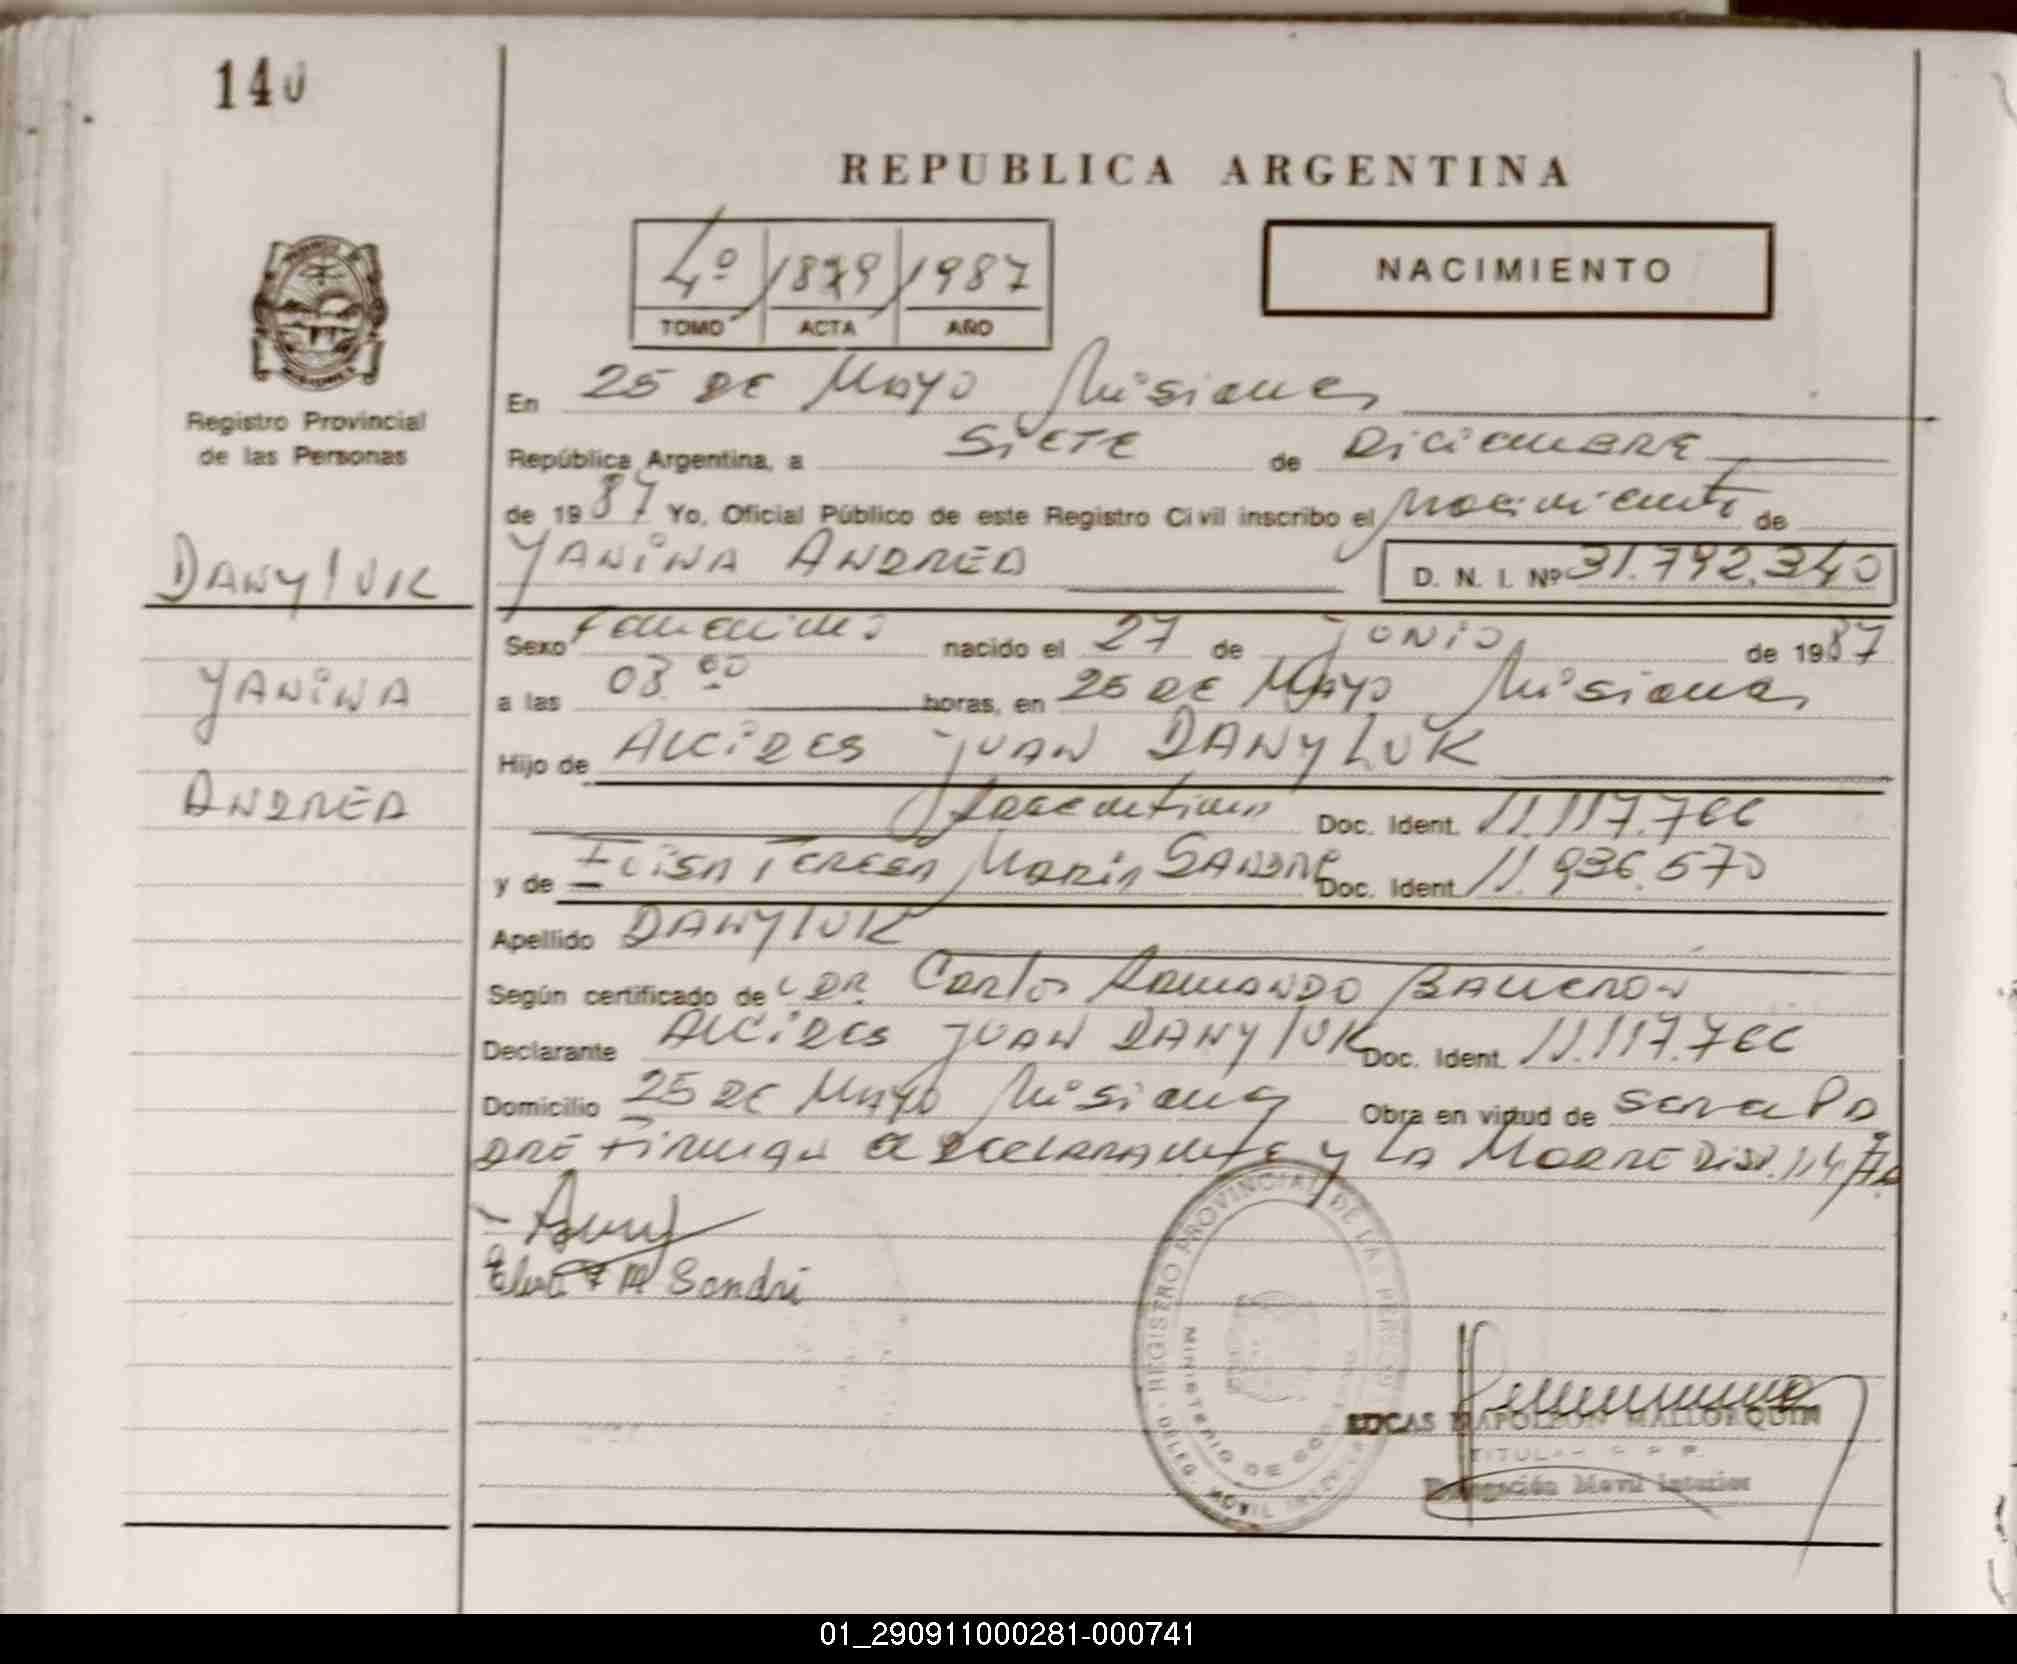 140
REPUBLICA ARGENTINA
4º 1879 1987
TOMO ACTA AÑO
NACIMIENTO
Registro Provincial
de las Personas
DANYLUK
YANINA
ANDREA
En 25 DE MAYO Misiones
República Argentina, a SIETE de DICIEMBRE
de 1987 Yo, Oficial Público de este Registro Civil inscribo el Nacimiento de
YANINA ANDREA D. N. I. Nº 31.792.340
Sexo Femenino nacido el 27 de JUNIO de 1987
a las 03 00 horas, en 25 DE MAYO Misiones
Hijo de ALCIDES JUAN DANYLUK
Argentino Doc. Ident. 11.117.766
y de TERESA MARIA SANDRI Doc. Ident. 11.936.570
Apellido DANYLUK
Según certificado de DR. Carlos ARMANDO
Declarante ALCIDES JUAN DANYLUK Doc. Ident. 11.117.766
Domicilio 25 DE MAYO Misiones Obra en virtud de SER el PA
DRE FIRMAN el DECLARANTE y LA MADRE
M Sandri
REGISTRO PROVINCIAL DE LAS PERSONAS
MINISTERIO DE
DELEG. MOVIL
LUCAS NAPOLEON MALLORQUIN
TITULAR
Delegación Movil Interior
01_290911000281-000741